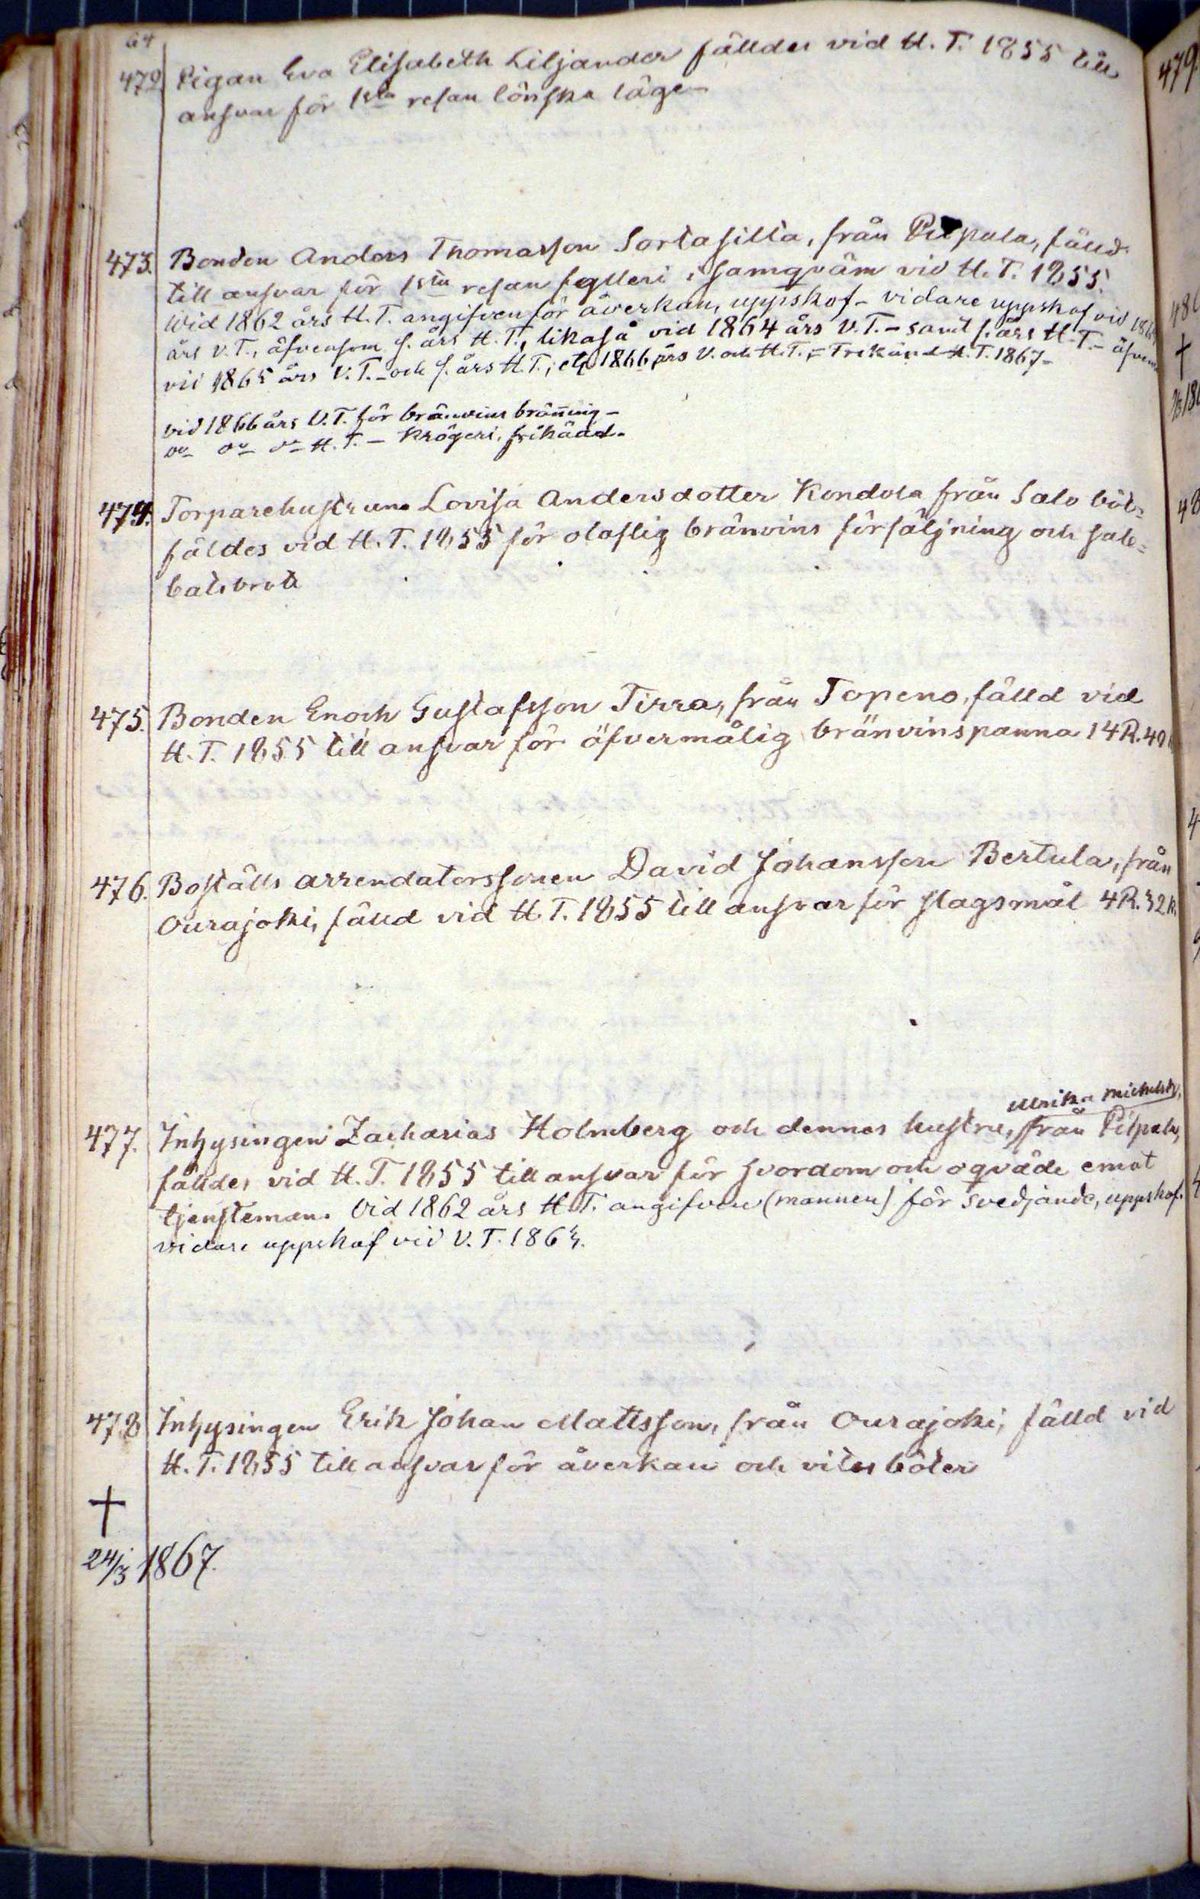 64
472 Pigan Eva Elisabeth Liljander fälldes vid H.T. 1855 till
ansvar för 1sta resan lönska läge
473. Bonden Anders Thomasson Sortasilta, från Pilpala, fälld
till ansvar för 1sta resan fylleri i samqväm vid H.T. 1855.
Wid 1862 års H.T. angifven för åverkan, uppskof - vidare uppskof vid
års V.T., äfvensom s. års H.T., likaså vid 1864 års V.T. - samt s. års H.T. -
vid 1865 års V.T. - och s. års H.T., 1866 års V. och H.T. = Frikänd H.T. 1867 -
vid 1866 års V.T. för bränvins bränning -
do do do H.T. - krögeri, frikänd.
474. Torparehustrun Lovisa Andersdotter Kondola från Salo böt-
fäldes vid H.T. 1855 för olaflig bränvins försäljning och sab=
batsbrott
475. Bonden Enoch Gustafsson Tirra, från Topeno, fälld vid
H.T. 1855 till ansvar för öfvermålig bränvinspanna 14R. 40
476. Boställs arrendatorssonen David Johansson Bertula, från
Ourajoki, fälld vid H.T. 1855 till ansvar för slagsmål 4R. 32 K.
Ulrika Michelsdr,
477. Inhysingen Zacharias Holmberg och dennes hustru, från Pilpala,
fälldes vid H.T. 1855 till ansvar för svordom och oqväde emot
tjensteman. Vid 1862 års H.T. angifven (mannen) för svedjande, uppskof.
vidare uppskof vid V.T. 1863.
478 Inhysingen Erik Johan Mattsson, från Ourajoki, fälld vid
H.T. 1855 till ansvar för åverkan och vites böter
†
24/3 1867.
479